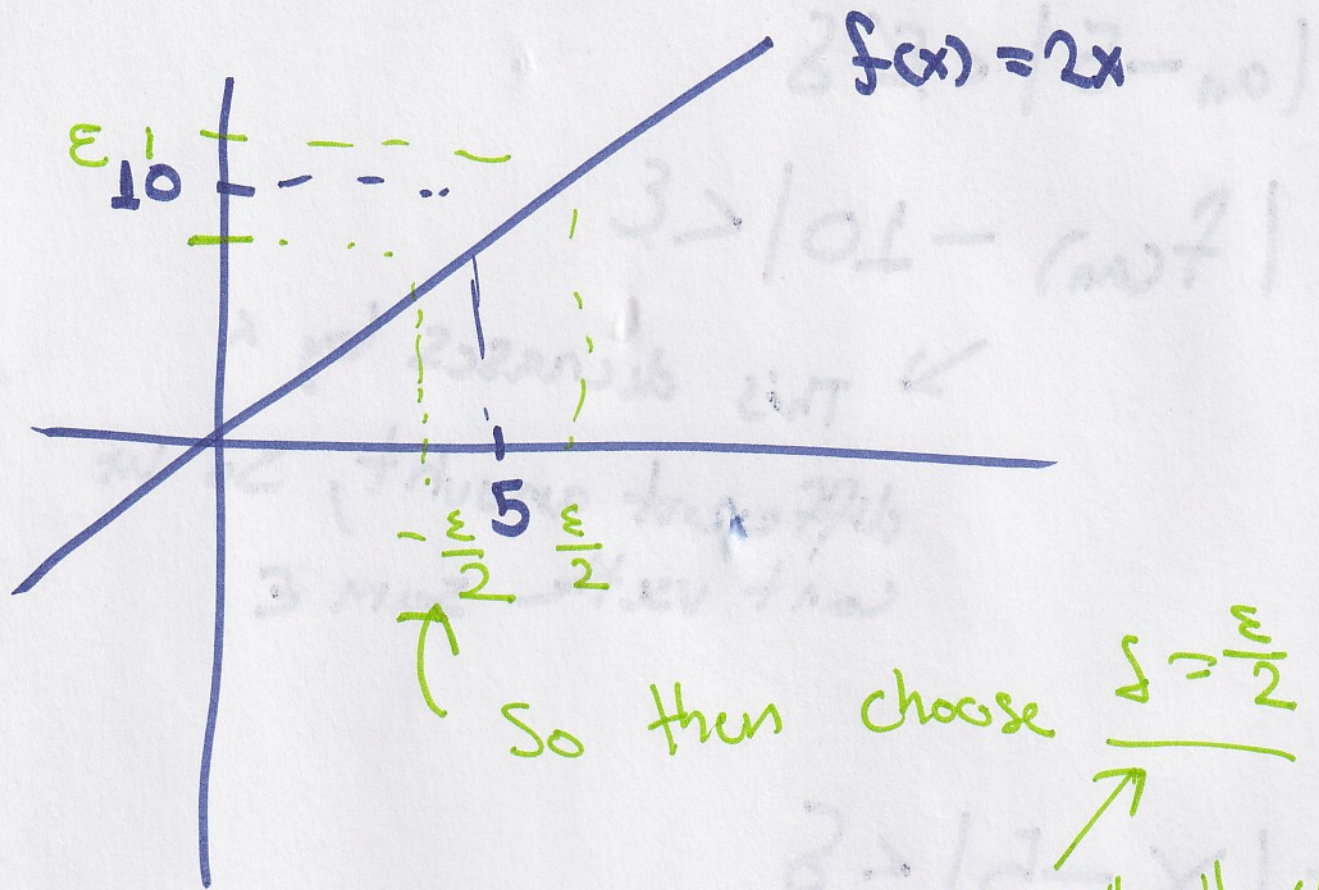 f(x) = 2x
ε
10
5
-ε/2 ε/2
So then choose δ = ε/2